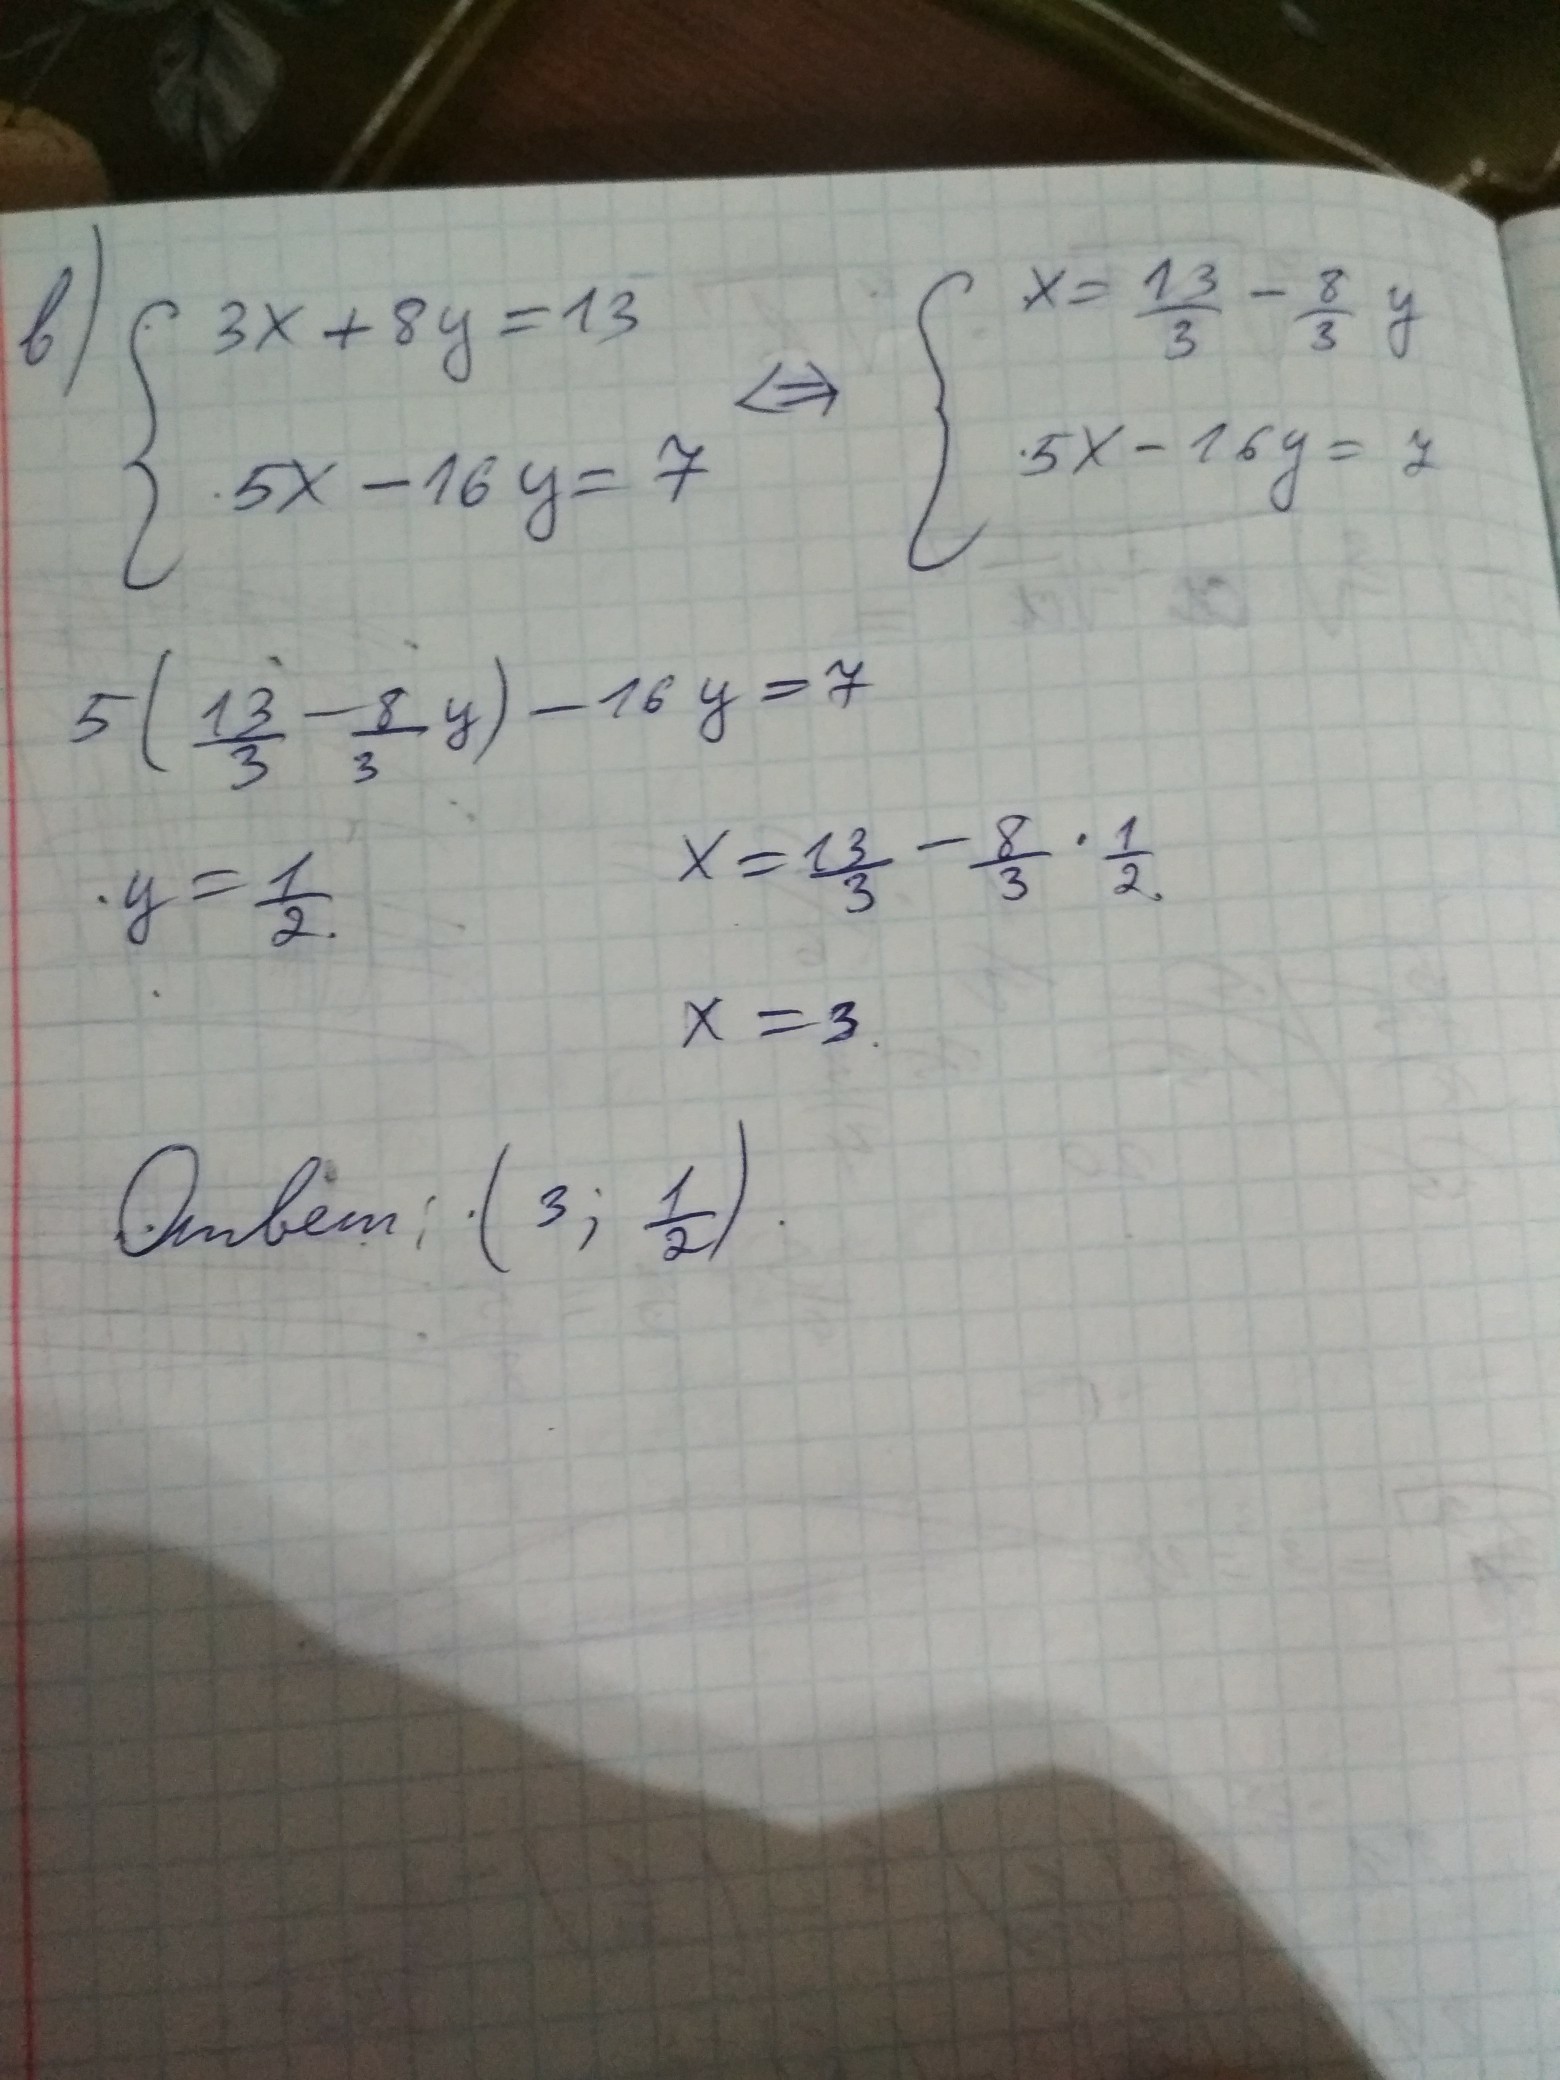 в) { 3x + 8y = 13
5x - 16y = 7 <=> { x = 13/3 - 8/3 y
5x - 16y = 7
5(13/3 - 8/3 y) - 16y = 7
y = 1/2.
x = 13/3 - 8/3 · 1/2.
x = 3.
Ответ: (3; 1/2).